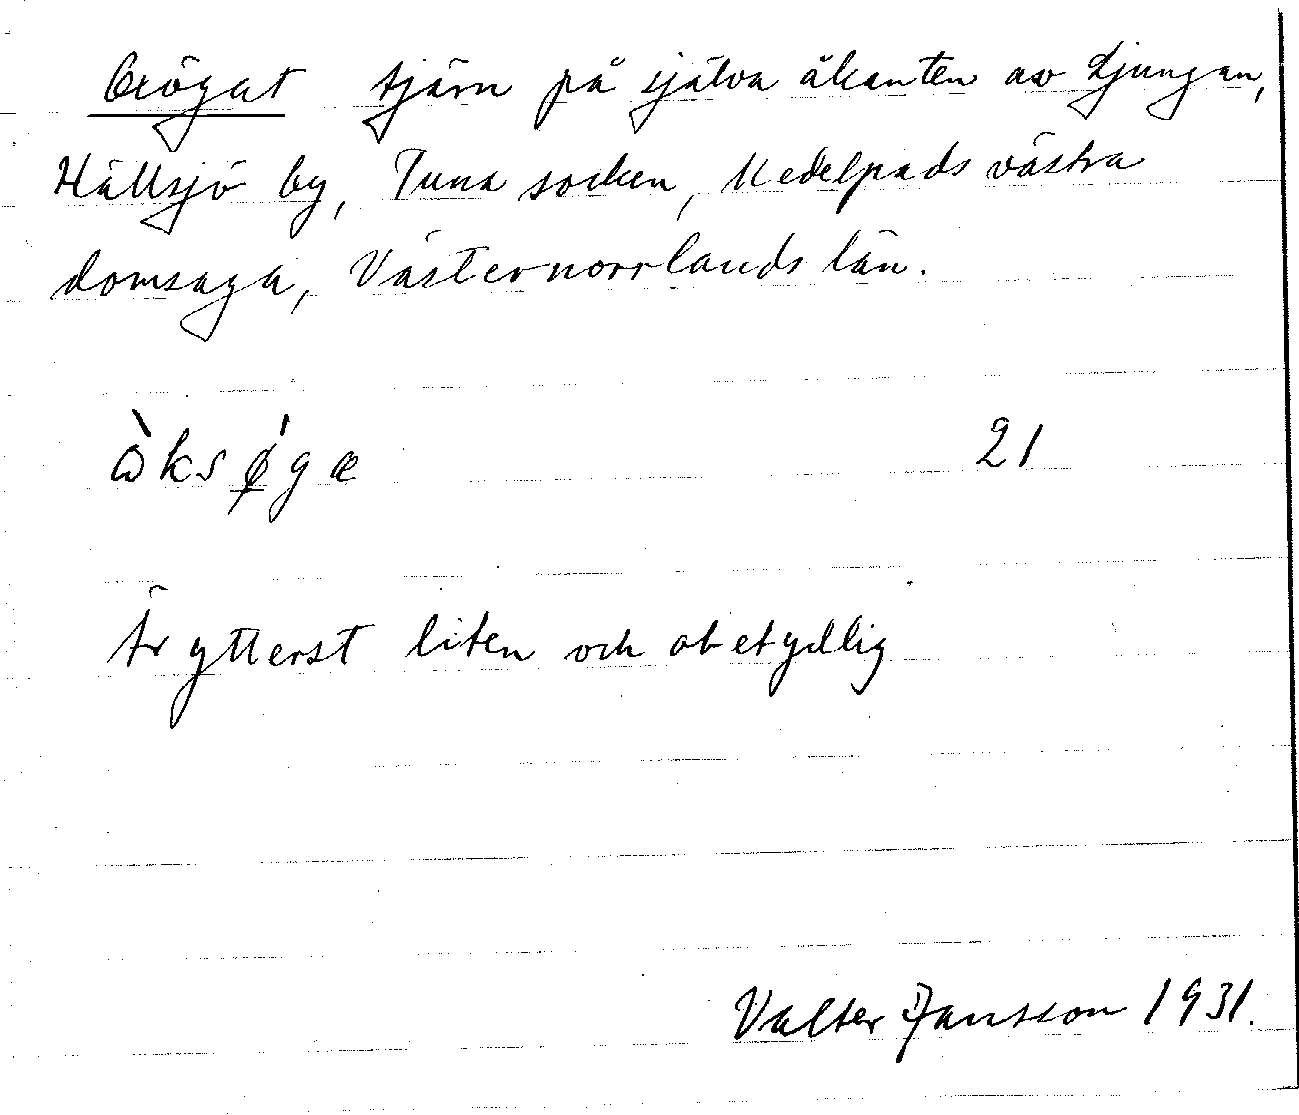 Oxögat tjärn på själva åkanten av Ljungan,
Hällsjö by, Tuna socken, Medelpads västra
domsaga, Västernorrlands län.
ὼksǿ̱gæ 21
Är ytterst liten och obetydlig
Valter Jansson 1931.